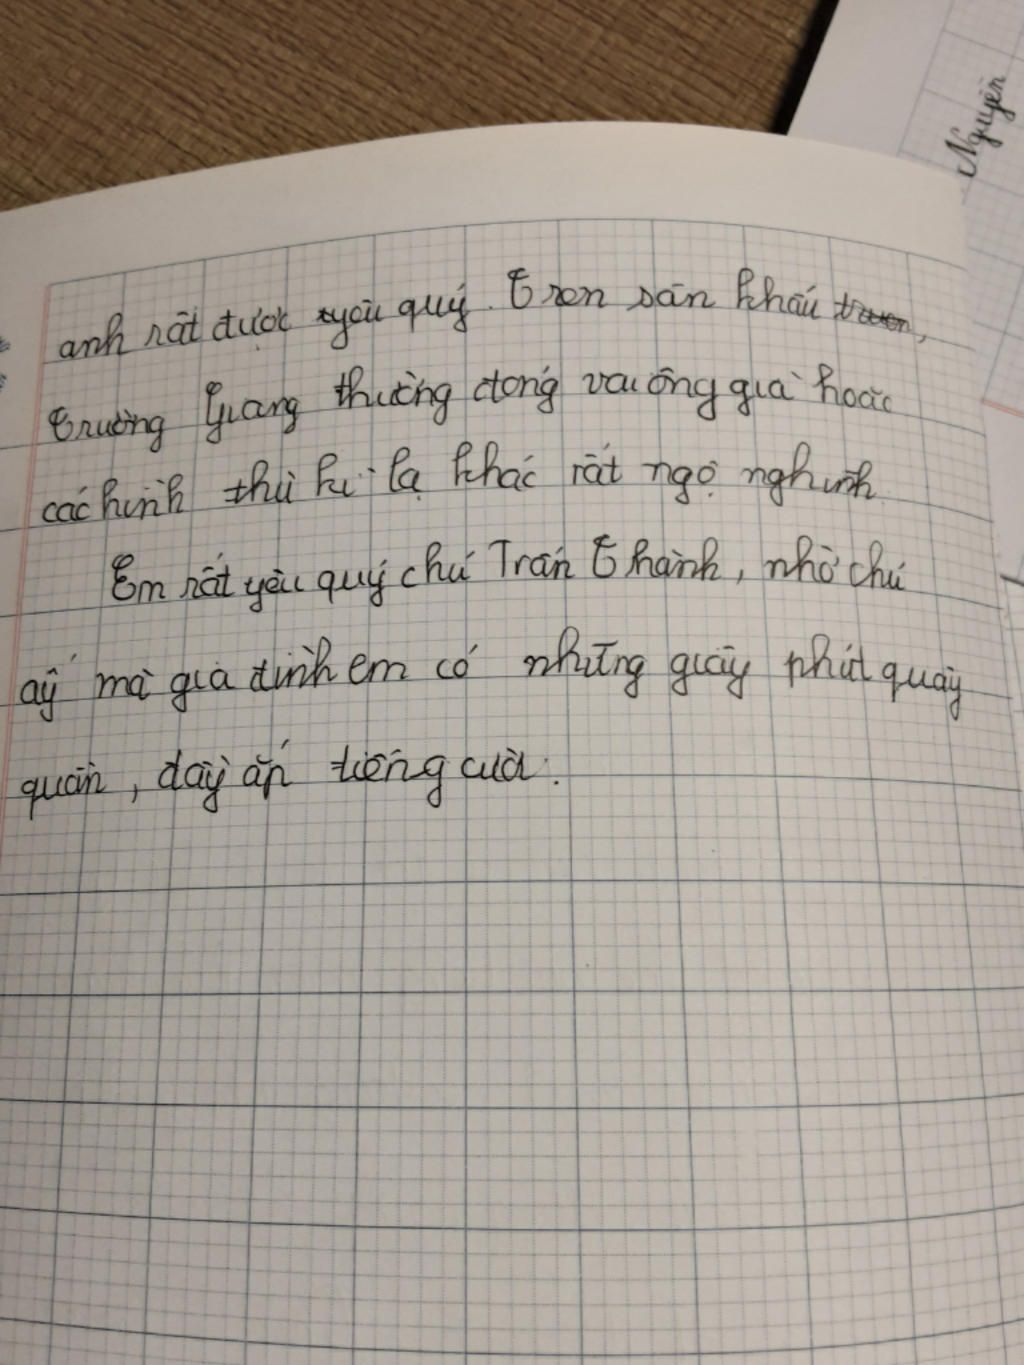 anh rất được yêu quý. Trên sân khấu,
Trường Giang thường đóng vai ông già hoặc
các hình thù kì lạ khác rất ngộ nghĩnh.
Em rất yêu quý chú Trấn Thành, nhờ chú
ấy mà gia đình em có những giây phút quây
quần, đầy ắp tiếng cười.
Nguyên